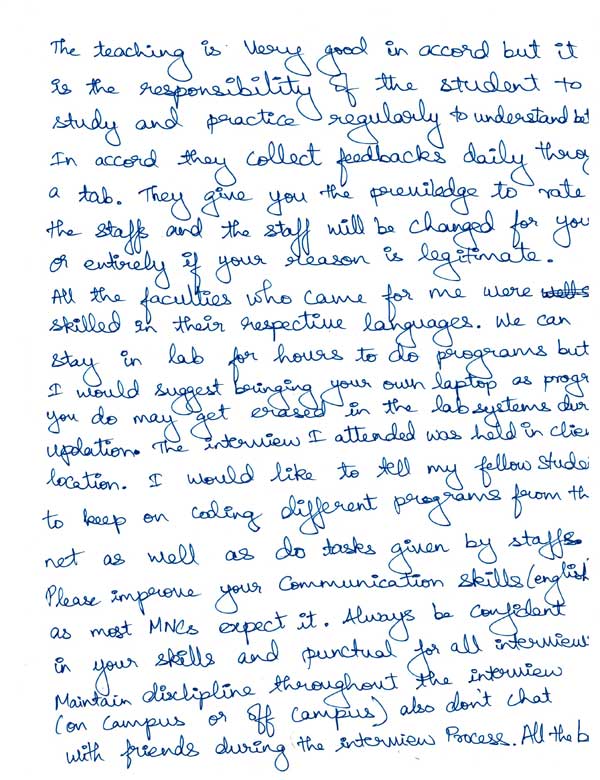 The teaching is very good in accord but it
is the responsibility of the student to
study and practice regularly to understand bet
In accord they collect feedbacks daily throu
a tab. They give you the previledge to rate
the staffs and the staff will be changed for you
or entirely if your reason is legitimate.
All the faculties who came for me were wells
skilled in their respective languages. We can
stay in lab for hours to do programs but
I would suggest bringing your own laptop as progr
you do may get erased in the lab systems dur
updation. The interview I attended was held in clien
location. I would like to tell my fellow stude
to keep on coding different programs from th
net as well as do tasks given by staffs.
Please improve your communication skills (english)
as most MNCs expect it. Always be confident
in your skills and punctual for all interviews
Maintain disclipline throughout the interview
(on campus or off campus) also don't chat
with friends during the interview Process. All the b